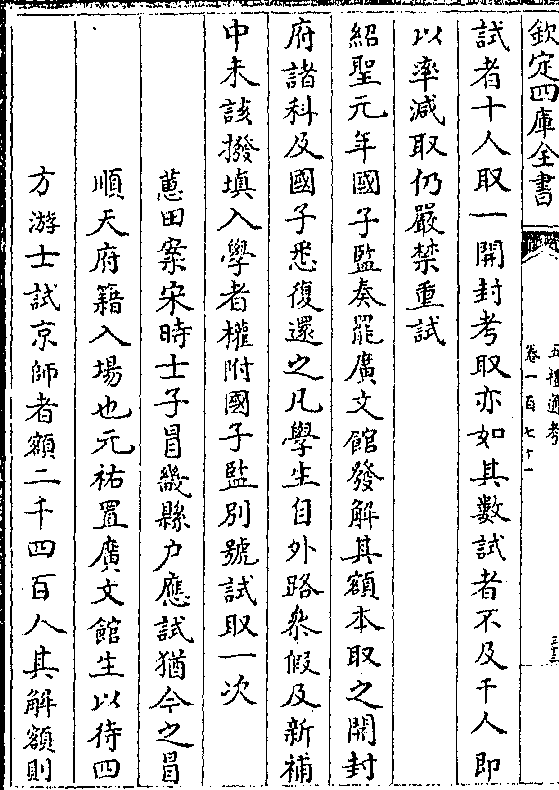 欽定四庫全書
五禮通考
卷一百七十一
三十三
試者十人取一開封考取亦如其數試者不及千人即
以率減取仍嚴禁重試
紹聖元年國子監奏罷廣文館發解其額本取之開封
府諸科及國子悉復還之凡學生自外路參假及新補
中未該撥填入學者權附國子監別號試取一次
蕙田案宋時士子冒畿縣户應試猶今之冒
順天府籍入場也元祐置廣文館生以待四
方游士試京師者額二千四百人其解額則